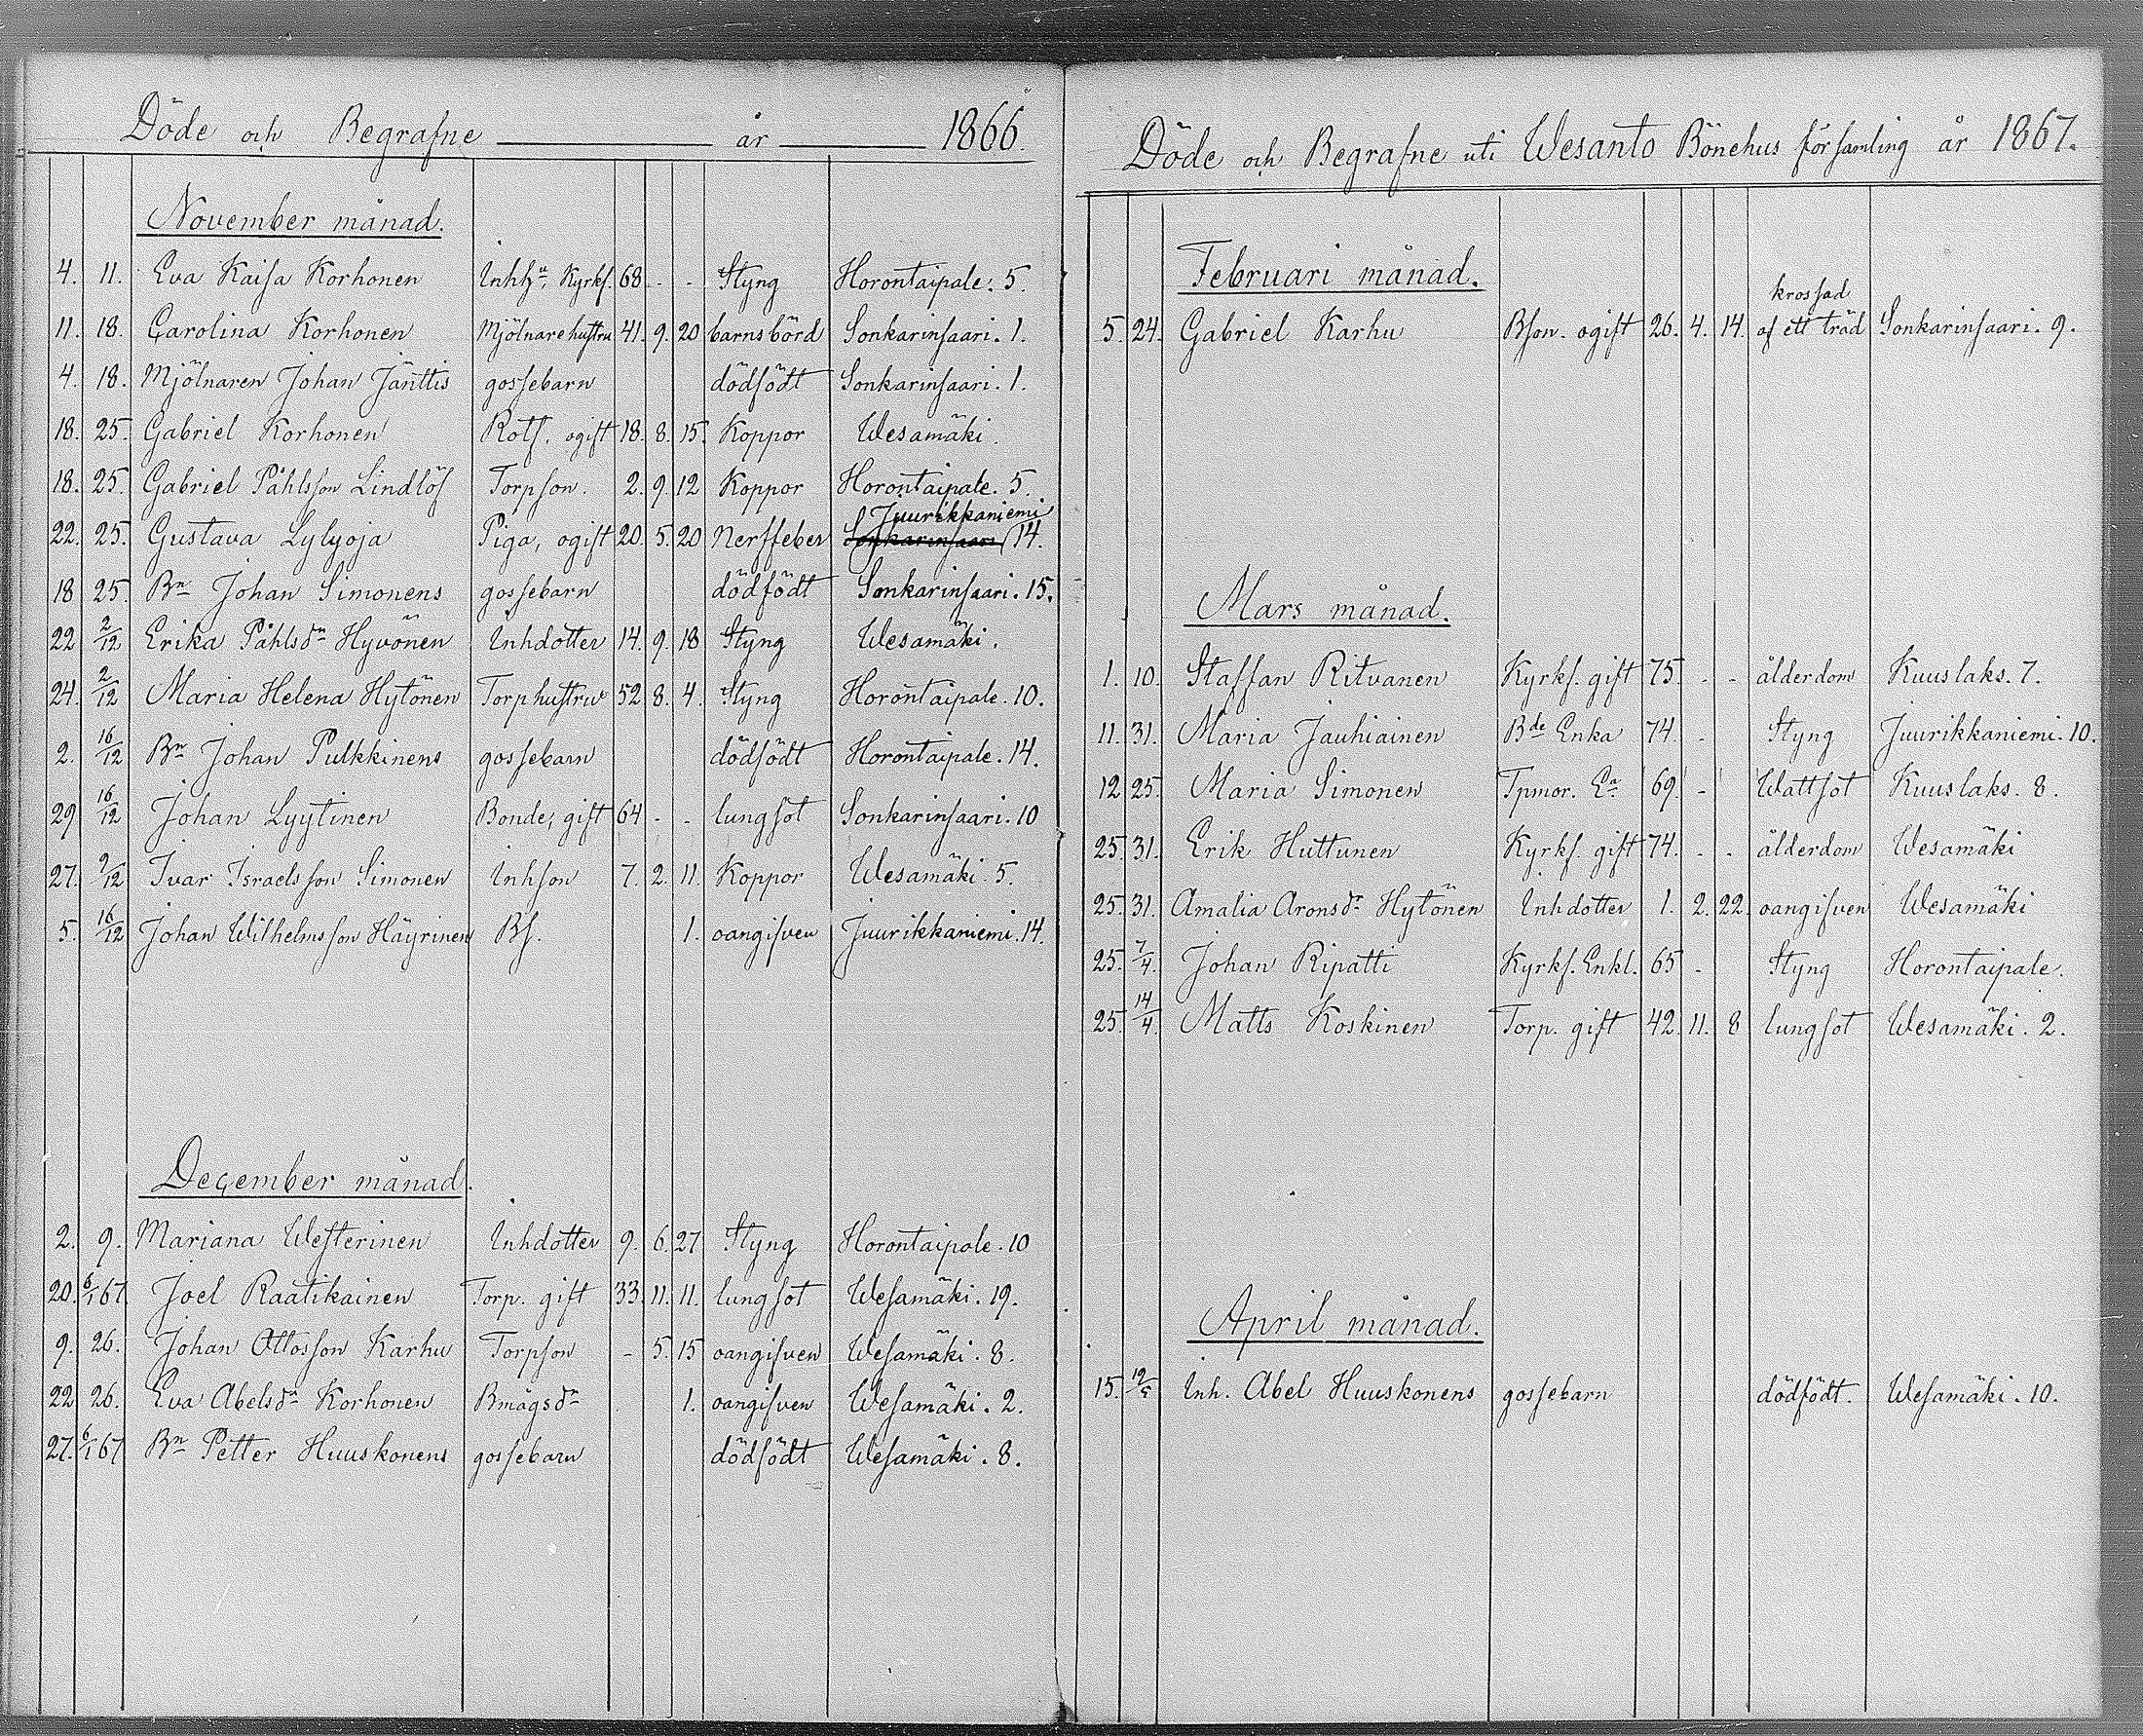 Döde och Begrafne år 1866.
November månad.
4. 11. Eva Kaisa Korhonen Inhh. Kyrkf. 68 - - Styng Horontaipale. 5.
11. 18. Carolina Korhonen Mjölnarehustru 41. 9. 20 barnsbörd Sonkarinsaari. 1.
4. 18. Mjölnaren Johan Jänttis gossebarn dödfödt Sonkarinsaari. 1.
18. 25. Gabriel Korhonen Rotf. ogift 18. 8. 15. Koppor Wesamäki.
18. 25. Gabriel Påhlsson Lindlöf Torpson. 2. 9. 12 Koppor Horontaipale. 5.
Juurikkaniemi
22. 25. Gustava Lylyoja Piga, ogift 20. 5. 20 Nerffeber Sonkarinsaari 14.
18 25. Bn Johan Simonens gossebarn dödfödt Sonkarinsaari. 15.
22 2/12 Erika Påhlsdr Hyvönen Inhdotter 14. 9. 18 Styng Wesamäki.
24. 2/12 Maria Helena Hytönen Torphustru 52 8. 4. Styng Horontaipale. 10.
2. 16/12 Bn Johan Pulkkinens gossebarn dödfödt Horontaipale. 14.
29 16/12 Johan Lyytinen Bonde, gift 64 - - lungsot Sonkarinsaari. 10
27. 9/12 Ivar Israelsson Simonen Inhson 7. 2. 11. Koppor Wesamäki. 5.
5. 16/12 Johan Wilhelmsson Häyrinen Bs. 1. oangifven Juurikkaniemi. 14.
December månad.
2. 9. Mariana Westerinen Inhdotter 9. 6. 27 Styng Horontaipale. 10
20. 6/1 67. Joel Raatikainen Torp. gift 33. 11. 11. lungsot Wesamäki. 19.
9. 26. Johan Ottosson Karhu Torpson - 5. 15 oangifven Wesamäki. 8.
22 26. Eva Abelsdr Korhonen Bmågsdr 1. oangifven Wesamäki. 2.
27. 6/1 67 Bn Petter Huuskonens gossebarn dödfödt Wesamäki. 8.
Döde och Begrafne uti Wesanto Bönehus församling år 1867.
Februari månad.
krossad
5. 24. Gabriel Karhu Bson. ogift 26. 4. 14. af ett träd Sonkarinsaari. 9.
Mars månad.
1. 10. Staffan Ritvanen Kyrkf. gift 75. - - ålderdom Kuuslaks. 7.
11. 31. Maria Jauhiainen Bde Enka 74. - Styng Juurikkaniemi. 10.
12 25. Maria Simonen Tpmor. Ea. 69. - Wattsot Kuuslaks. 8.
25. 31. Erik Huttunen Kyrkf. gift 74. - - ålderdom Wesamäki
25. 31. Amalia Aronsdr Hytönen Inhdotter 1. 2. 22. oangifven Wesamäki
25. 7/4. Johan Ripatti Kyrkf. Enkl. 65 - Styng Horontaipale.
25. 14/4. Matts Koskinen Torp. gift 42. 11. 8 lungsot Wesamäki. 2.
April månad.
15. 19/5 Inh. Abel Huuskonens gossebarn dödfödt. Wesamäki. 10.